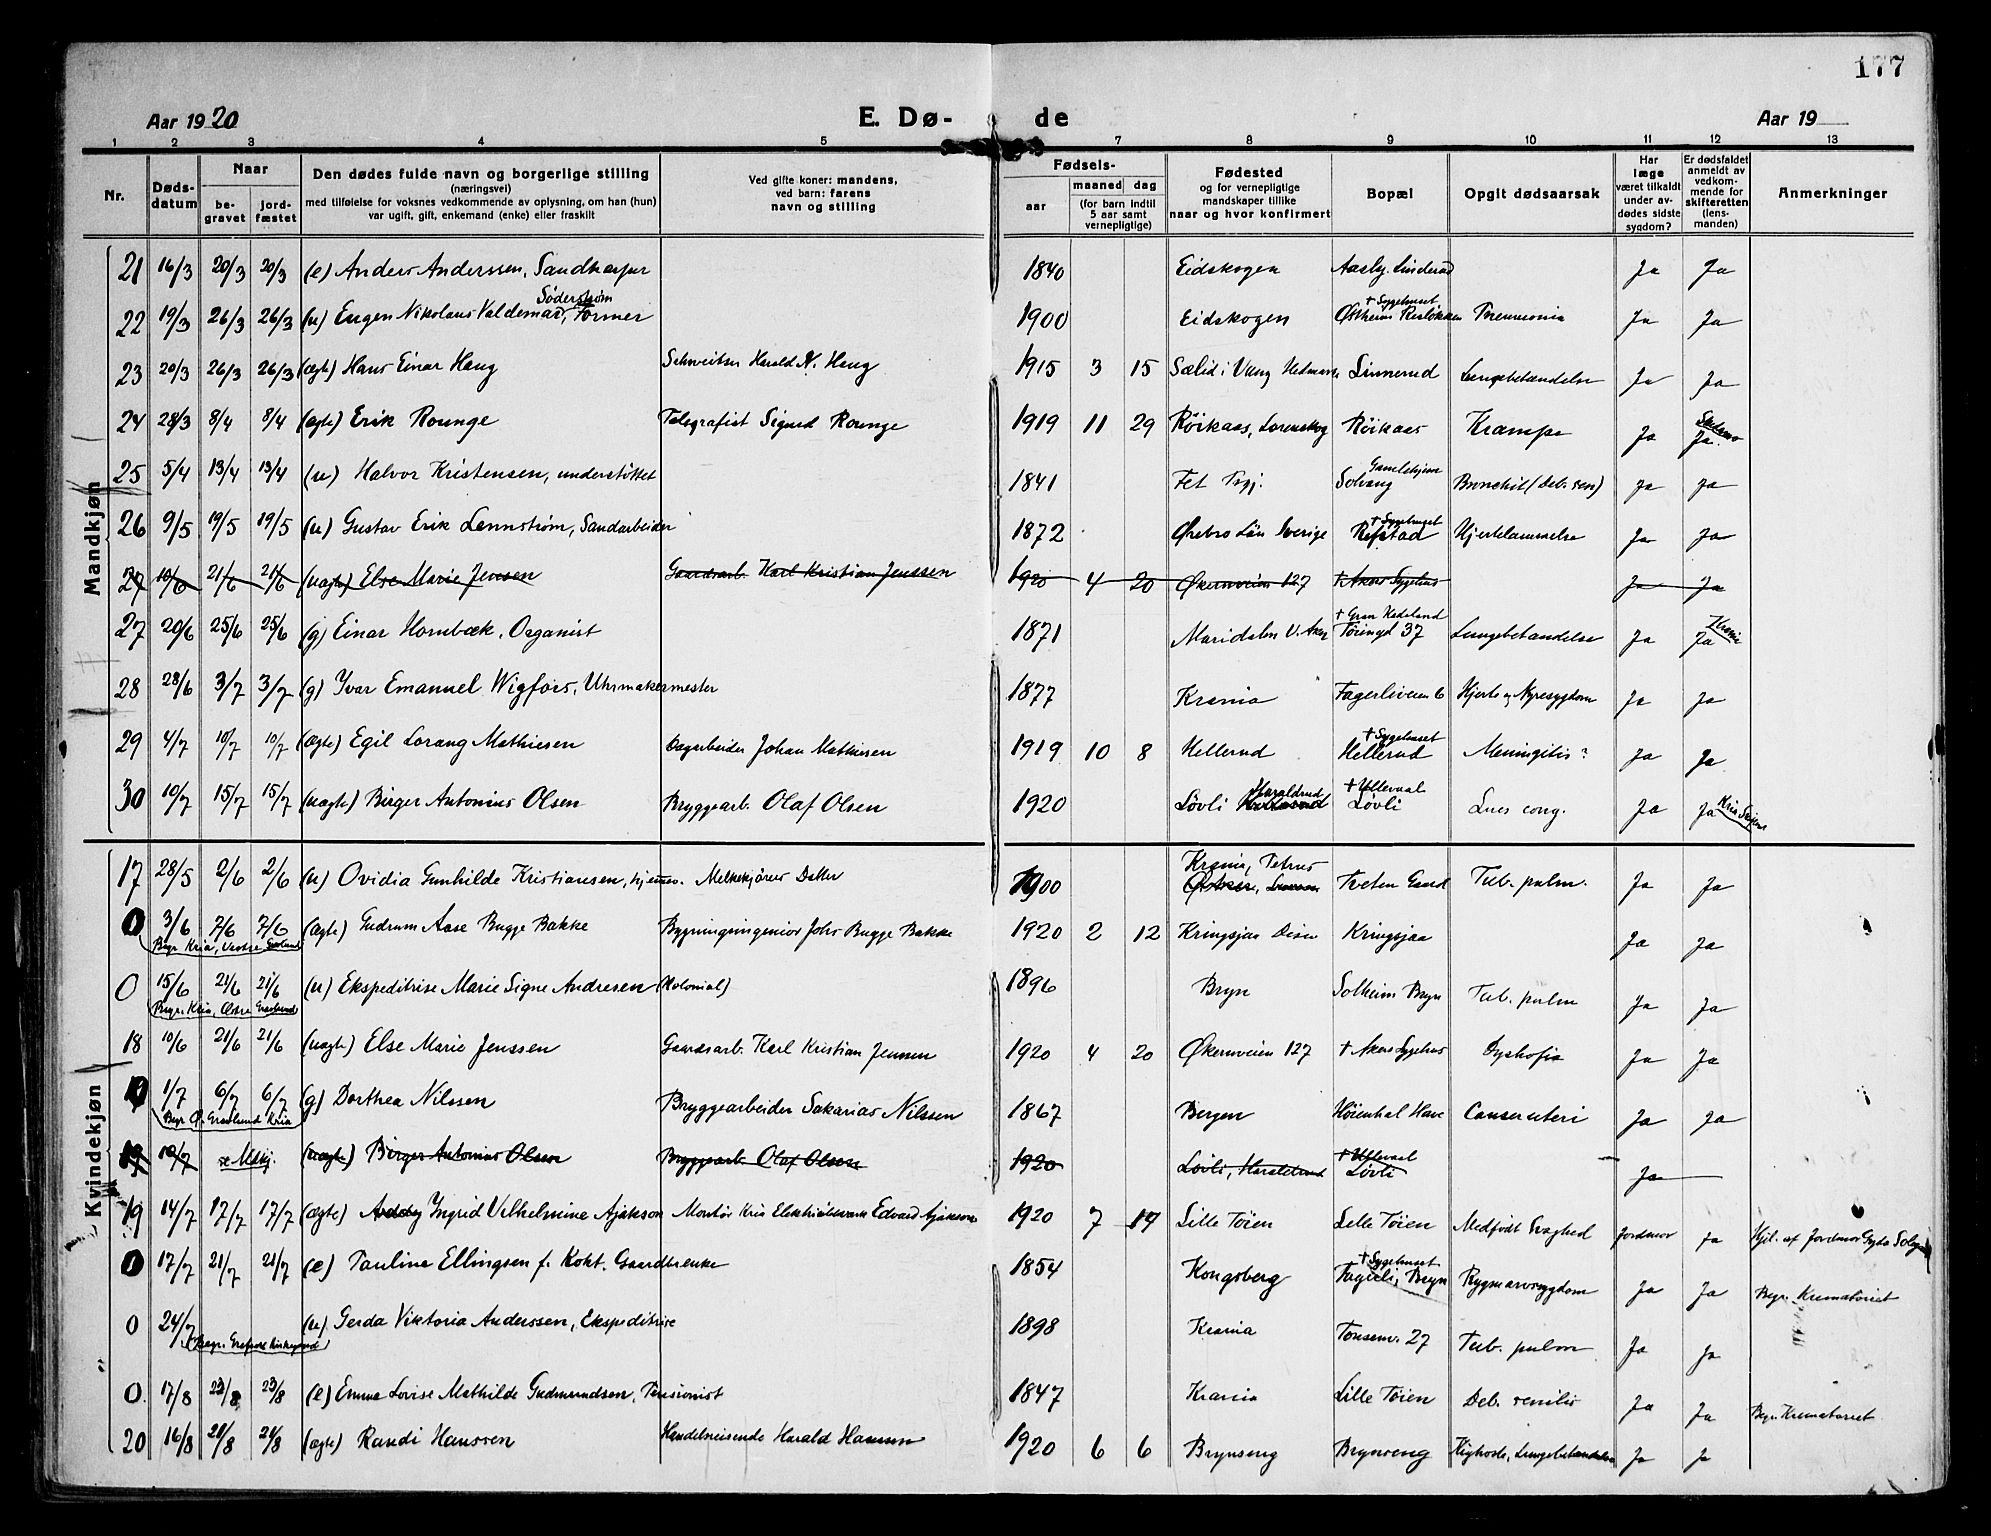 177
Aar 1920 E. Dø- de Aar 19
1 2 3 4 5 7 8 9 10 11 12 13
Nr. Døds-datum Naar be-gravet jord-fæstet Den dødes fulde navn og borgerlige stilling (næringsvei) med tilføielse for voksnes vedkommende av oplysning, om han (hun) var ugift, gift, enkemand (enke) eller fraskilt Ved gifte koner: mandens, ved barn: farens navn og stilling Fødsels- aar maaned dag (for barn indtil 5 aar samt vernepligtige) Fødested og for vernepligtige mandskaper tillike naar og hvor konfirmert Bopæl Opgit dødsaarsak Har læge været tilkaldt under av-dødes sidste sygdom? Er dødsfaldet anmeldt av vedkom-mende for skifteretten (lens-manden) Anmerkninger
Mandkjøn
21 16/3 20/3 20/3 (e) Anders Anderssen, Sandkasper 1840 Eidskogen Aasby. Linderud Ja Ja
22 19/3 26/3 26/3 (u) Eugen Nikolaus Valdemar, Söderstrøm Former 1900 Eidskogen + Sygehuset Østheim Risløkken Pneumonia Ja Ja
23 20/3 26/3 26/3 (ægte) Hans Einar Haug Schweitser Harald N. Haug 1915 3 15 Sælid i Vang Hedmark Linnerud Lungebetændelse Ja Ja
24 28/3 8/4 8/4 (ægte) Erik Rounge Telegrafist Sigurd Rounge 1919 11 29 Røikaas, Lørenskog Røikaas Krampe Ja Ja
25 5/4 13/4 13/4 (u) Halvor Kristensen, understøttet 1841 Fet Pgj. Gamlehjem Solvang Bronchit (Deb. sen) Ja Ja
26 9/5 19/5 19/5 (u) Gustav Erik Lennstrøm, Sandarbeider 1872 Ørebro Län Sverige + Sygehuset Refstad Hjertelammelse Ja Ja
27 10/6 21/6 21/6 (uægte) Else Marie Jenssen Gaardsarb. Karl Kristian Jenssen 1920 4 20 Økernveien 127 + Akers Sygehus Ja Ja
27 20/6 25/6 25/6 (g) Einar Hornbæk, Organist 1871 Maridalen V. Aker + Gran Hadeland Tøiengt 37 Lungebetændelse Ja Ja
28 28/6 3/7 3/7 (g) Ivar Emanuel Wigfors, Uhrmakermester 1877 Krania Fagerliveien 6 Hjerte og Nyresygdom Ja Ja
29 4/7 10/7 10/7 (Ægte) Egil Lorang Mathiesen Dagarbeider Johan Mathisen 1919 10 8 Hellerud + Sygehuset Hellerud Meningitis? Ja Ja
30 10/7 15/7 15/7 (uægte) Birger Antonius Olsen Bryggearb. Olaf Olsen 1920 Løvli Haraldrud + Ullevaal Løvli Lues cong. Ja Ja
Kvindekjøn
17 28/5 2/6 2/6 (u) Ovidia Gunhilde Kristiansen, hjemmev. Melkekjørers Datter 1900 Krania, Petrus Tveten Gaard Tub. pulm. Ja Ja
0 3/6 7/6 7/6 (ægte) Gudrum Aase Bugge Bakke Bygningsingeniør Johs Bugge Bakke 1920 2 12 Kringsjaa Disen Kringsjaa Ja Ja
Begr. Kria, Vestre Gravlund
0 15/6 21/6 21/6 (u) Ekspeditrise Marie Signe Andresen (Kolonial) 1896 Bryn Solheim Bryn Tub. pulm Ja Ja
Begr. Kria, Østre Gravlund
18 10/6 21/6 21/6 (uægte) Else Marie Jenssen Gaardsarb. Karl Kristian Jensen 1920 4 20 Økernveien 127 + Akers Sygehus Dystrofia Ja Ja
0 1/7 6/7 6/7 (g) Dorthea Nilssen Bryggearbeider Sakarias Nilssen 1867 Bergen Høienhal Have Cancer uteri Ja Ja
Begr. Ø. Gravlund Kria
19 10/7 se Mskj. (uægte) Birger Antonius Olsen Bryggearb. Olaf Olsen 1920 Løvli, Haraldsrud + Ullevaal Løvli Ja
19 14/7 17/7 17/7 (ægte) Ingrid Vilhelmine Ajakson Montør Kria Elektricitetsverk Edvard Ajakson 1920 7 14 Lille Tøien Lille Tøien Medfødt Svaghed Jordmor Ja Hjl. af Jordmor Gyda Solg
0 17/7 21/7 21/7 (e) Pauline Ellingsen f. Kokt. Gaardbrenke 1854 Kongsberg + Sygehuset Fagerli, Bryn Rygmarvssygdom Ja Ja Begr. Krematoriet
0 24/7 (u) Gerda Viktoria Anderssen, Ekspeditrise 1898 Krania Tonsenv. 27 Tub. pulm Ja Ja
0 17/8 23/8 23/8 (e) Emma Lovise Mathilde Gudmundsen, Pensionist 1847 Krania Lille Tøien Deb. senilis Ja Ja Begr. Krematoriet
20 16/8 21/8 21/8 (ægte) Randi Hanssen Handelsreisende Harald Hanssen 1920 6 6 Brynseng Brynseng Kighoste, Lungebetændelse Ja Ja